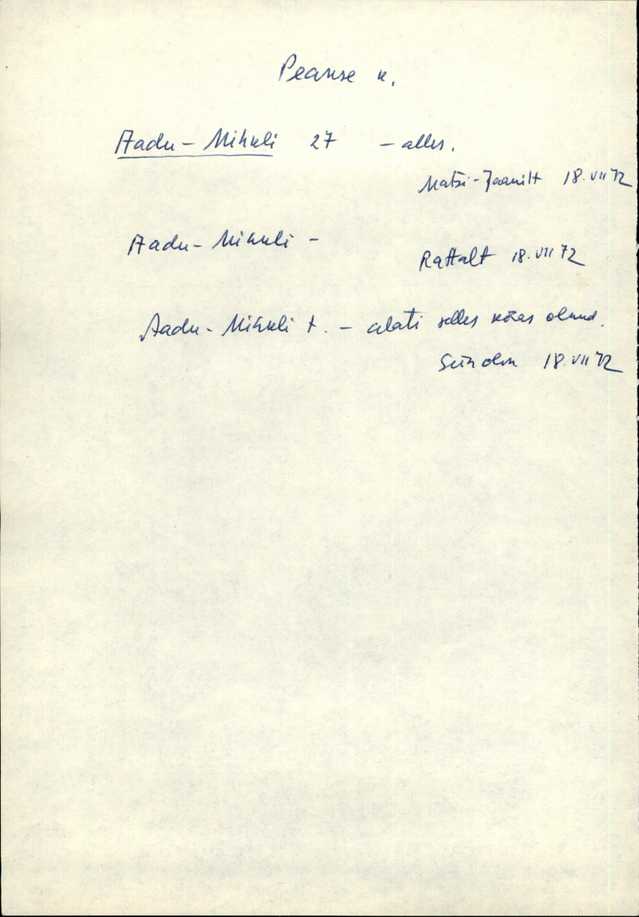 Peanse k.
Aadu-Mihkli 27 - alles.
Matsi-Jaanilt 18.VII 72
Aadu-Mihkli -
Rattalt 18.VII 72
Aadu-Mihkli t. - alati selles kohas olnud.
18.VII 72